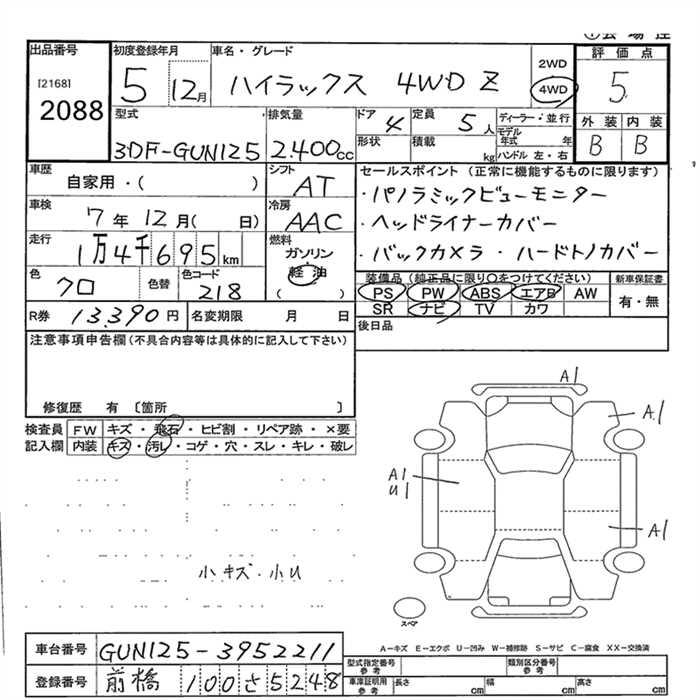 出品番号
[2168]
2088
初度登録年月
5 12月
車名・グレード
ハイラックス 4WD Z
2WD
4WD
評価点
5
外装 内装
B B
型式
3DF-GUN125
排気量
2.400cc
ドア 4
定員 5人
形状
積載 kg
ディーラー・並行
モデル年式 年
ハンドル 左・右
車歴
自家用・( )
シフト
AT
車検
7年12月( 日)
冷房
AAC
走行
1万4千695km
燃料
ガソリン
軽油
( )
色
クロ
色替
色コード
218
R券 13.390円
名変期限 月 日
セールスポイント (正常に機能するものに限ります)
・パノラミックビューモニター
・ヘッドライナーカバー
・バックカメラ・ハードトノカバー
装備品 (純正品に限り○をつけてください)
PS PW ABS エアB AW
SR ナビ TV カワ
新車保証書
有・無
後日品
注意事項申告欄(不具合内容等は具体的に記入して下さい)
修復歴 有 〔箇所 〕
検査員記入欄
FW キズ・飛石・ヒビ割・リペア跡・×要
内装 キズ・汚レ・コゲ・穴・スレ・キレ・破レ
小キズ・小U
A1
A1
A1
U1
A1
スペア
A-キズ E-エクボ U-凹み W-補修跡 S-サビ C-腐食 XX-交換済
車台番号 GUN125-3952211
登録番号 前橋 100 さ 5248
型式指定番号 参考
類別区分番号 参考
車庫証明用 参考
長さ cm
幅 cm
高さ cm